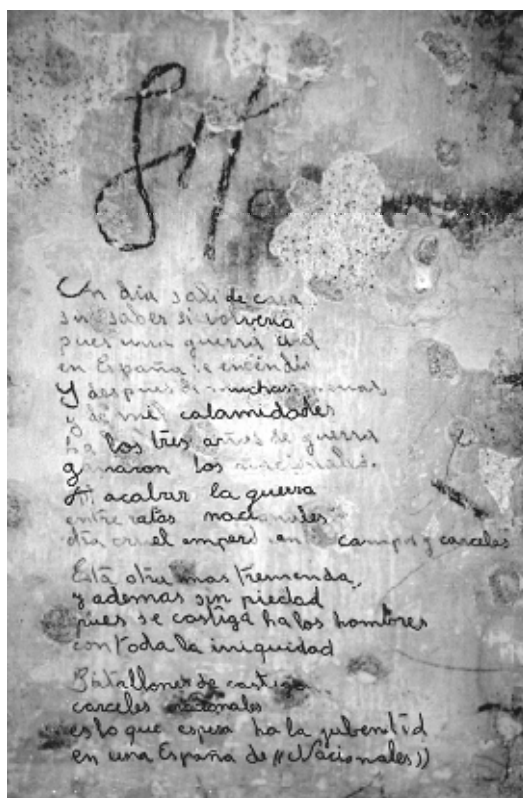 Un dia sali de casa
sin saber si volveria
pues una guerra
en España se encendio
Y despues de muchas penas
y de mil calamidades
ha los tres años de guerra
ganaron los nacionales.
Al acabar la guerra
entre ratas nacionales
otra cruel empero en campos y carceles
Esta otra mas tremenda,
y ademas sin piedad
pues se castiga ha los hombres
con toda la iniquidad
Batallones de castigo
carceles nacionales
es lo que espera ha la jubentud
en una España de «Nacionales»